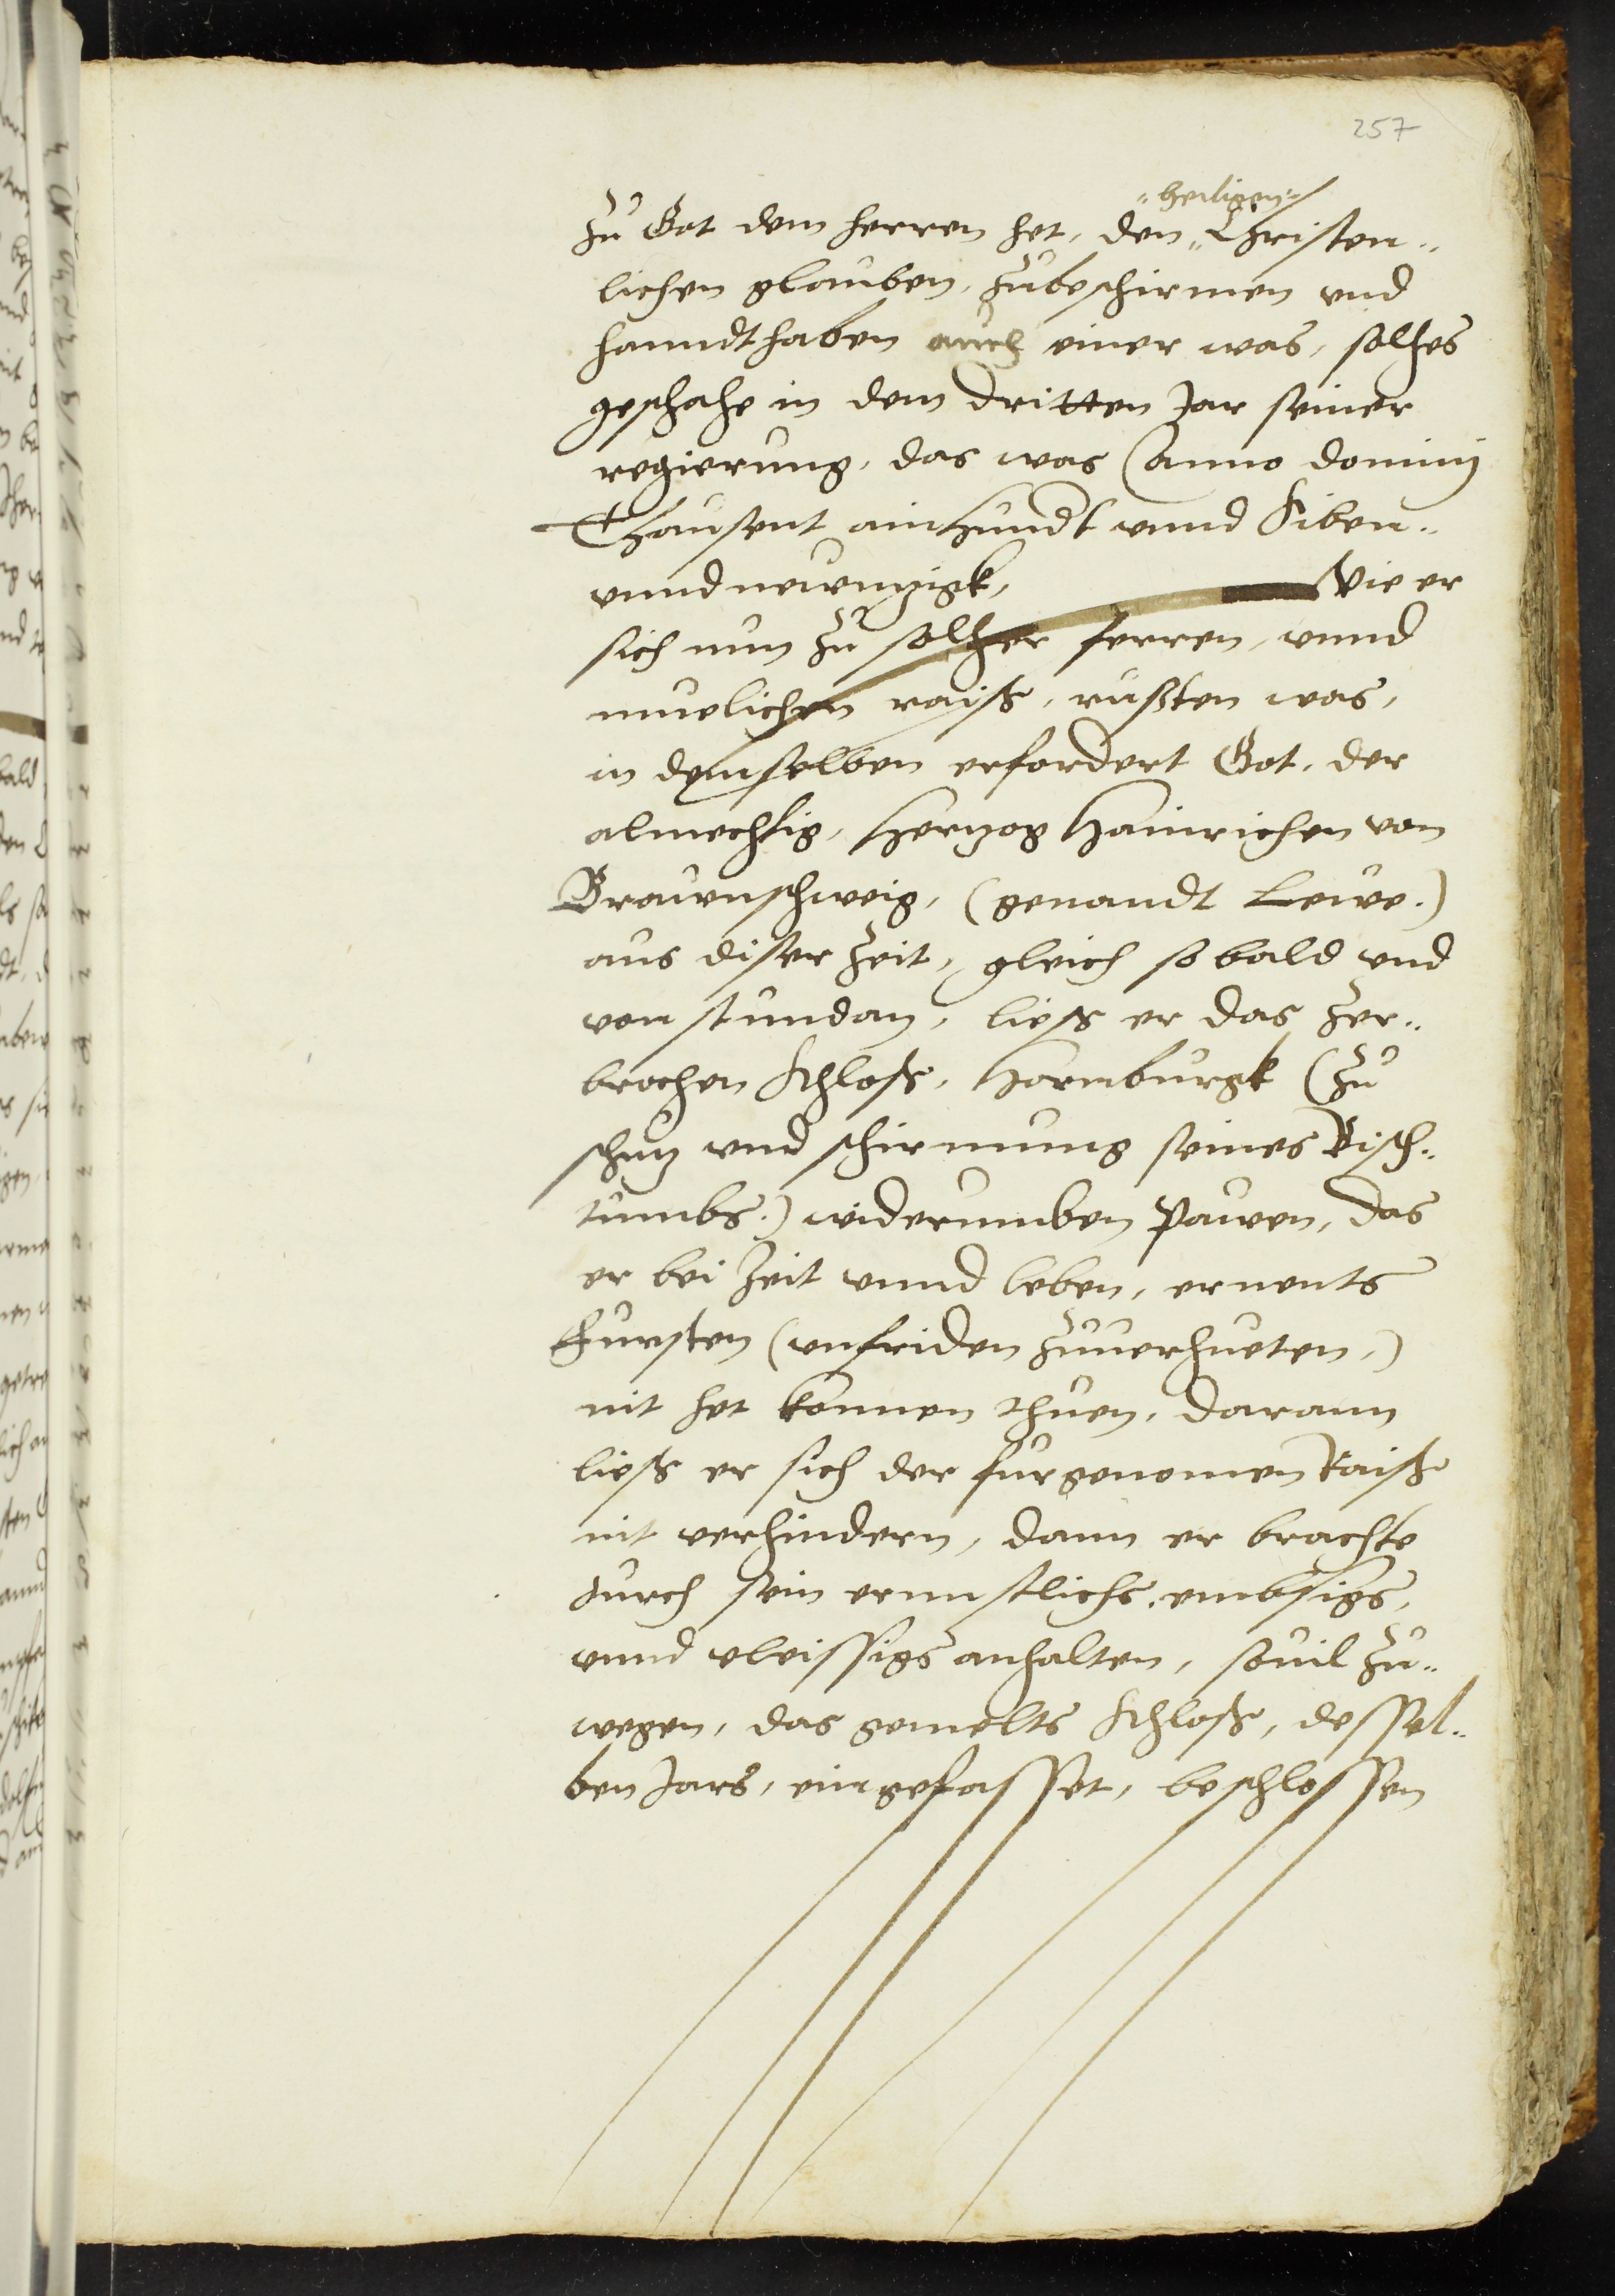 257
"heiligen"
zu Got dem herren het, den "Christen"
lichen glauben, zubeschirmen vnd
hanndthaben auch einer was, solhes
geschahe in dem dritten Jar seiner
regierung, das was (anno dominj
Thausent ainhundt vnnd Siben"
vnndneuntzigk, Wie er
sich nun zu solher ferren, vnnd
muelichen raiss, rußten was,
in demselben erfordert Got, der
almechtig, Hertzog Hainrichen von
Braunschweig, (genandt Lewe.)
aus diser Zeit, gleich so bald vnd
von stundan, liess er das Zer"
brochen Schloss, Hornburgk (zu
schutz vnd schirmung seines Bisch"
tumbs.) widerumben pawen, das
er bei Zeit vnnd leben, ernents
Fursten (vnfriden zuuerhueten,)
nit het konnen thuen, darann
liess er sich der furgenomen Raiss
nit verhindern, dann er brachte
durch sein ernnstlichs. embsigs,
vnnd vleissigs anhalten, souil zu"
wegen, das gemelts Schloss, dessel"
ben Jars, eingefasset, beschlossen